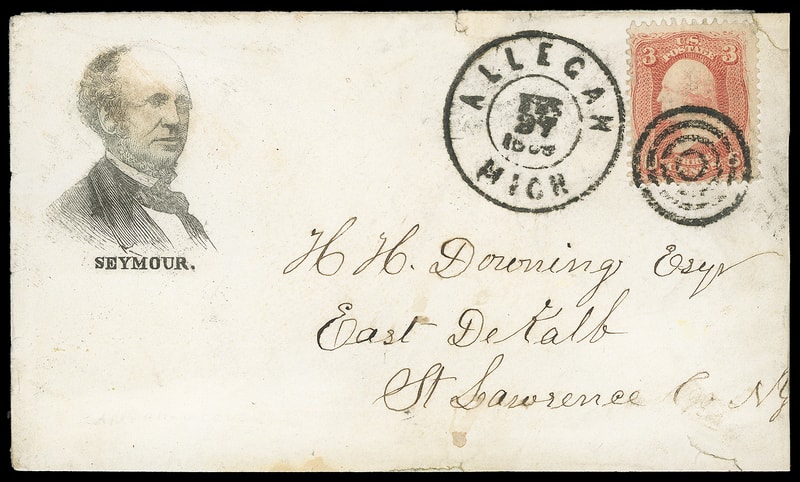 SEYMOUR.
ALLEGAN
FEB
27
MICH
3 U.S. 3
POSTAGE
H. H. Downing Esqr
East DeKalb
St Lawrence Co NY